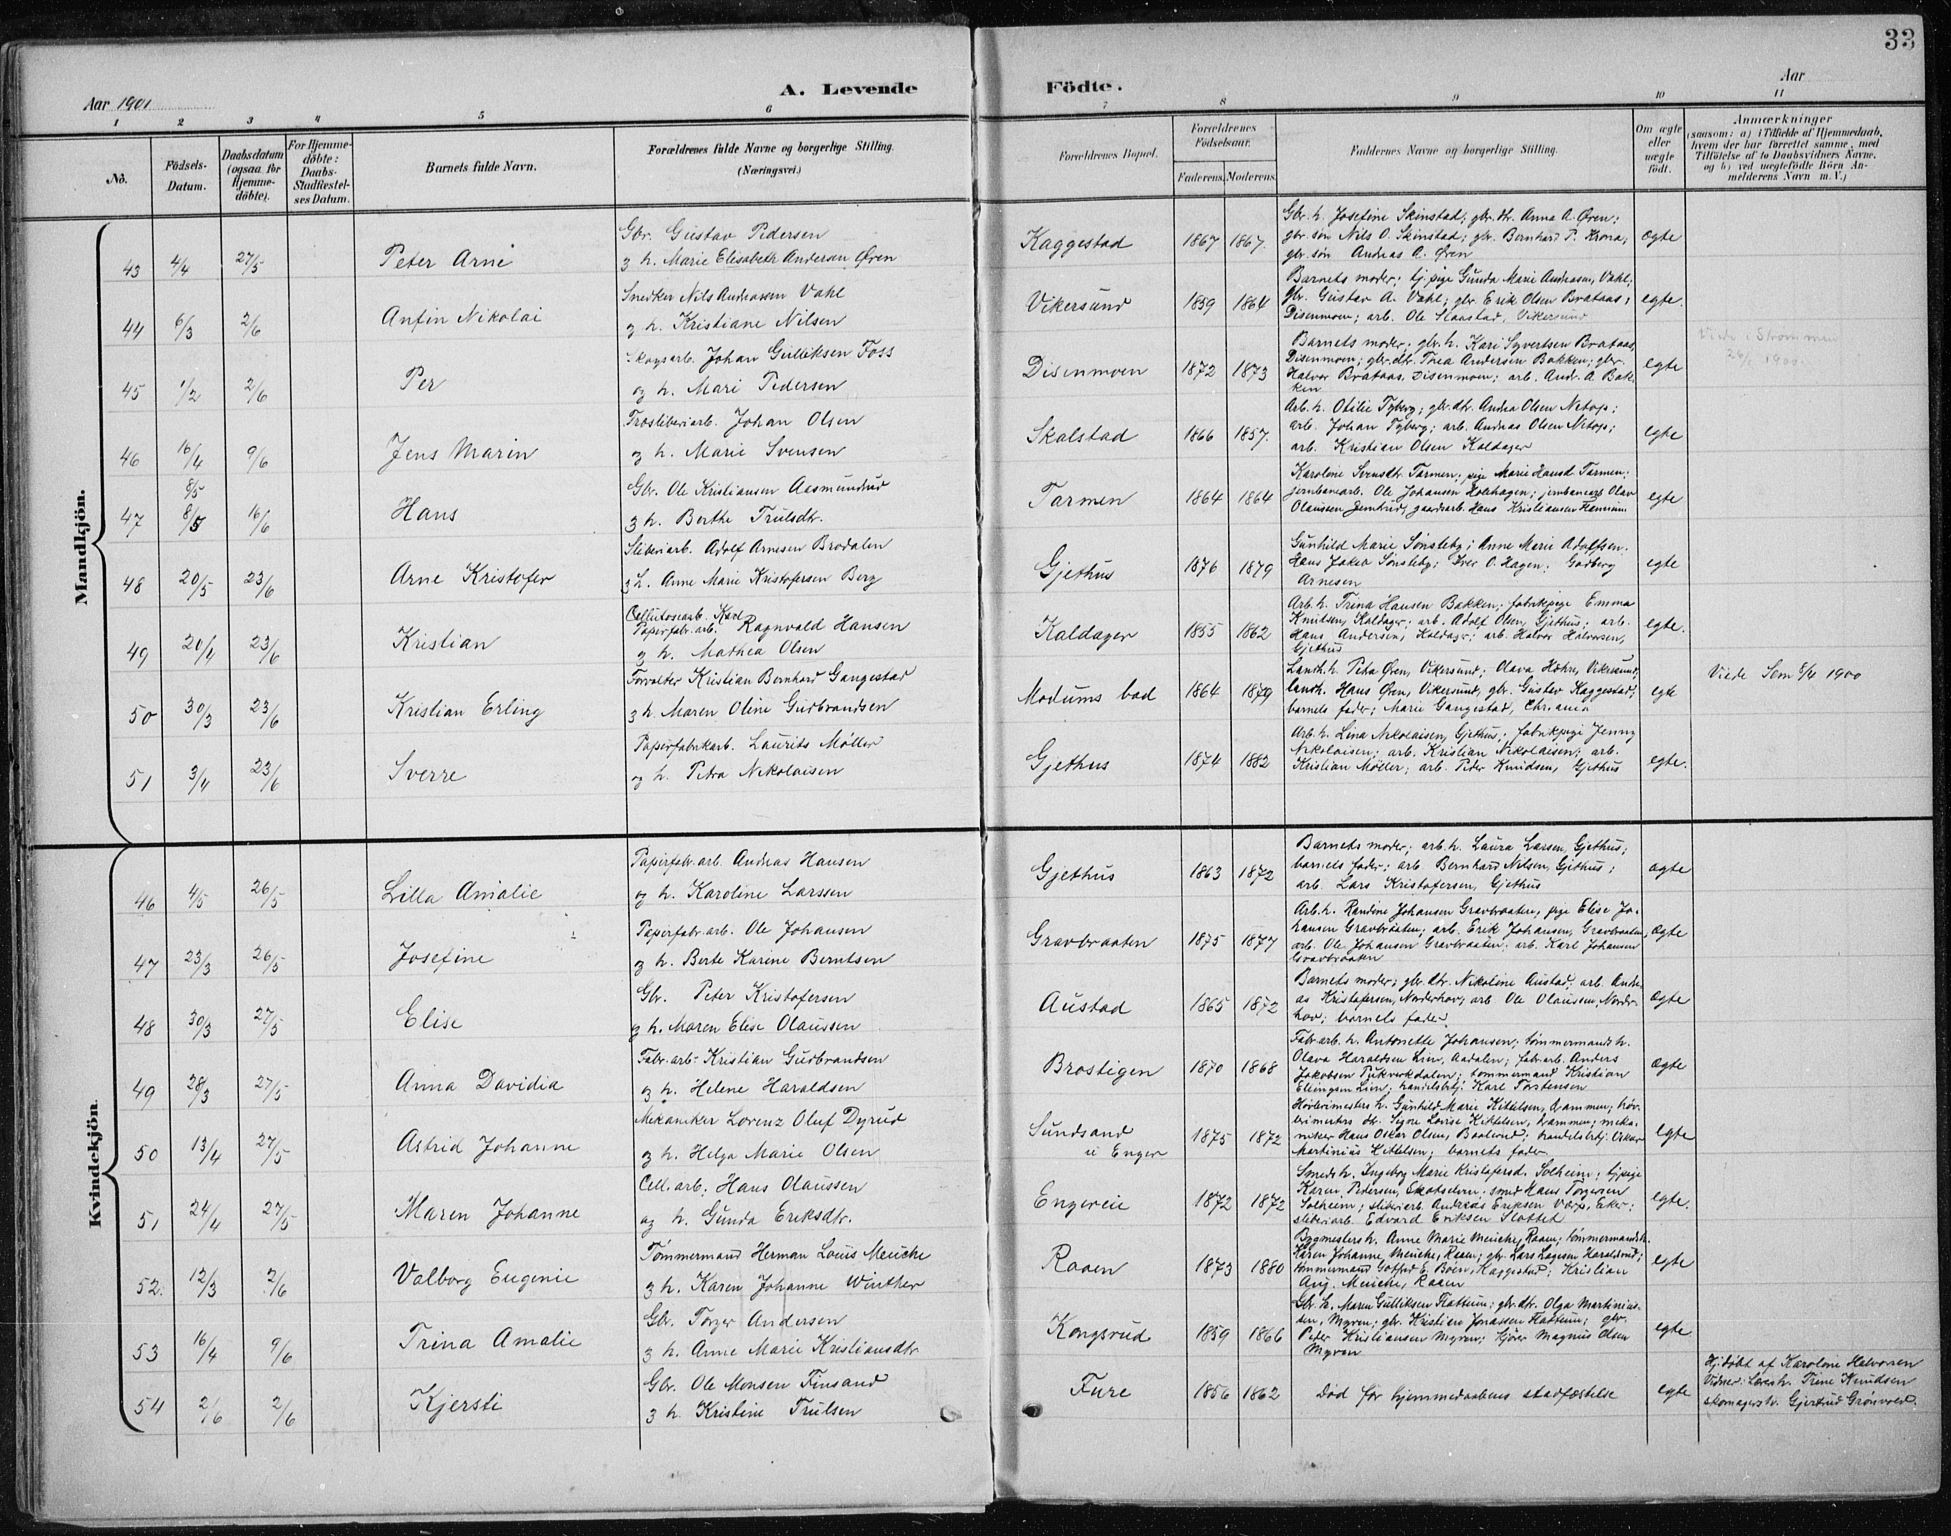 33
Aar 1901
A. Levende
Födte.
Aar
1 2 3 4 5 6 7 8 9 10 11
No.
Födsels-Datum.
Daabsdatum (ogsaa for Hjemmedöbte).
For Hjemmedöbte: Daabs-Stadfestelses Datum.
Barnets fulde Navn.
Forældrenes fulde Navne og borgerlige Stilling.
(Næringsvei.)
Forældrenes Bopæl.
Forældrenes Födselsaar.
Faderens. Moderens.
Faddernes Navne og borgerlige Stilling.
Om ægte eller uægte födt.
Anmærkninger
(saasom: a) i Tilfælde af Hjemmedaab, hvem der har forrettet samme, med Tilföielse af to Daabsvidners Navne, og b) ved uægtefödte Börn Anmelderens Navn m. V.)
Mandkjön.
43 4/4 27/5 Peter Arne
Gbr. Gustav Pedersen
g h. Marie Elisabeth Andersen Øren
Kaggestad 1867 1867.
Gbr. h. Josefine Skinstad; gbr. dtr. Anna A. Øren;
gbr. søn Nils O. Skinstad; gbr. Bernhard P. Krona;
gbr. søn Andreas A. Øren
ægte
44 6/3 2/6 Anfin Nikolai
Snedker Nils Andreassen Vahl
og h. Kristiane Nilsen
Vikersund 1859 1864
Barnets moder; tj. pige Gunda Marie Andreasen, Vahl;
gbr. Gustav A. Vahl; gbr. Erik Olsen Brataas;
Disenmoen; arb. Ole Slaastad, Vikersund
egte.
45 1/2 2/6 Per
Skogsarb. Johan Gulliksen Foss
og h. Mari Pedersen
Disenmoen 1872 1873
Barnets moder; gbr. h. Kari Syvertsen Brataas,
Disenmoen; gbr. dtr. Thea Andersen Bakken; gbr.
Halvor Brataas, Disenmoen; arb. And. A Bakken
egte
Viede i Strømmen
1900
46 16/4 9/6 Jens Marin
Træsliberiarb. Johan Olsen
og h. Marie Svensen
Skalstad 1866 1857.
Arb. h. Otilie Tyberg; gbr. dtr. Andrea Olsen Netop;
arb. Johan Tyberg; arb. Andreas Olsen Netop;
arb. Kristian Olsen Kaldager
egte
8/5
47 8/5 16/6 Hans
Gbr. Ole Kristiansen Aasmundrud
g h. Berthe Trulsdtr.
Tarmen 1864 1864
Karoline Svensdtr. Tarmen; pige Marie Hansd Tarmen;
jernbanearb. Ole Johansen Holehagen; jernbanearb Olav
Olaussen Jernhud, gaardsarb. Hans Kristiansen Hansum
egte
48 20/5 23/6 Arne Kristofer
Sliberiarb. Adolf Arnesen Brodalen
g h. Anne Marie Kristofersen Berg
Gjethus 1876 1879
Gunhild Marie Sønsteby; Anne Marie Adolfsen.
Hans Jakob Sønsteby; Iver O. Hagen; Godberg
Arnesen
egte
49 20/4 23/6 Kristian
Cellulosearb. Karl
Papirfabr. arb. Ragnvald Hansen
g h. Mathea Olsen
Kaldager 1855 1862
Arb. h. Trina Hansen Bakken; fabrikpige Emma
Knudsen, Kaldager; arb. Adolf Olsen, Gjethus; arb.
Hans Andersen, Kaldager; arb. Halvor Halvorsen,
Gjethus
egte.
50 30/3 23/6 Kristian Erling
Forvalter Kristian Bernhard Gangestad
g h. Maren Oline Gudbrandsen
Modums bad 1864 1879
Landh. h. Petra Øren, Vikersund; Olava Høhn, Vikersund,
landh. Hans Øren, Vikersund, gbr. Gustav Kaggestad;
barnets fader; Marie Gangestad, Chr.ania
egte
Viede Sem 8/4 1900
51 3/4 23/6 Sverre
Papirfabrikarb. Laurits Møller
og h. Petra Nikolaisen
Gjethus 1874 1882
Arb. h. Lina Nikolaisen, Gjethus; fabrikpige Jenny
Nikolaisen; arb. Kristian Nikolaisen; arb.
Kristian Møller; arb. Peder Knudsen, Gjethus
egte.
Kvindekjön.
46 4/5 26/5 Lilla Amalie
Papirfabr. arb. Andreas Hansen
og h. Karoline Larssen
Gjethus 1863 1872
Barnets moder; arb. h. Laura Larssen, Gjethus;
barnets fader; arb. Bernhard Nilsen, Gjethus;
arb. Lars Kristofersen, Gjethus
ægte
47 23/3 26/5 Josefine
Papirfabr. arb. Ole Johansen
g h. Berte Karine Berntsen
Gravbraaten 1875 1877
Arb. h. Randine Johansen Gravbraaten, pige Elise Jo-
hansen Gravbraaten; arb. Erik Johansen, Gravbraaten;
arb. Ole Johansen Gravbraaten; arb. Karl Johansen
Gravbraaten
ægte
48 30/3 27/5 Elise
Gbr. Peter Kristofersen
g h. Maren Elise Olaussen
Austad 1865 1872
Barnets moder; gbr. dtr. Nikoline Austad, arb. Andre-
as Kristofersen, Norderhov; arb. Ole Olaussen, Norder-
hov; barnets fader
Ægte
49 28/3 27/5 Anna Davidia
Fabr. arb. Kristian Gudbrandsen
og h. Helene Haraldsen
Brostigen 1870 1868
Fabr. arb. h. Antonette Johansen; tømmermands h.
Olava Haraldsen Lien, Aadalen; fabr. arb. Anders
Jakobsen Pukverkdalen; tømmermand Kristian
Ellingsen Lien; handelsbetj. Karl Torstensen
Ægte
50 13/4 27/5 Astrid Johanne
Mekaniker Lorenz Oluf Dyrud
g h. Helga Marie Olsen
Sundsand
u Enger 1875 1872
Høvlerimesters h. Gunhild Marie Kittelsen, Drammen; høv-
lerimesters dtr. Signe Lovise Kittelsen, Drammen; meka-
niker Hans Oskar Olsen, handelsbetj. Oskar
Martinius Kittelsen; barnets fader
egte
51 24/4 27/5 Maren Johanne
Cell. arb. Hans Olaussen
og h. Gunda Eriksdtr.
Engereie 1872 1872
Smeds h. Ingeborg Marie Kristofersd. Solheim; tj. pige
Karen Pedersen, smed Hans Torgersen
Solheim; sliberiarb. Andreas Eriksen Vorp, Eker;
sliberiarb. Edvard Eriksen Slottet
egte.
52. 12/3 2/6 Valborg Eugenie
Tømmermand Herman Louis Meiche
g h. Karen Johanne Winther
Raaen 1873 1880
Bygmesters h. Anne Marie Meiche, Raaen; tømmermands h.
Karen Johanne Meiche, Raaen; gbr. Lars Lagesen Haraldsrud;
tømmermand Gotfred E. Boen, Kaggestad; Kristian
Aug. Meiche, Raaen
egte
53 16/4 9/6 Trina Amalie
Gbr. Torger Andersen
g h. Anne Marie Kristiansdtr.
Kongsrud 1859 1866
Gbr. h. Maren Gulliksen Flattum; gbr. dtr. Olga Martinius-
den, Myren; gbr. Kristian Jonassen Flattum; gbr.
Peder Kristiansen Myren; kjører Magnus Olsen
Myren
egte
54 2/6 2/6 Kjersti
Gbr. Ole Monsen Finsand
g h. Kristine Trulsen
Fure 1856 1862
Død før hjemmedaabens stadfæstelse
egte
Hj. døbt af Karoline Halvorsen
Vidner: Læresh. Trine Knudsen
skomagersh. Gjertrud Grønvold.